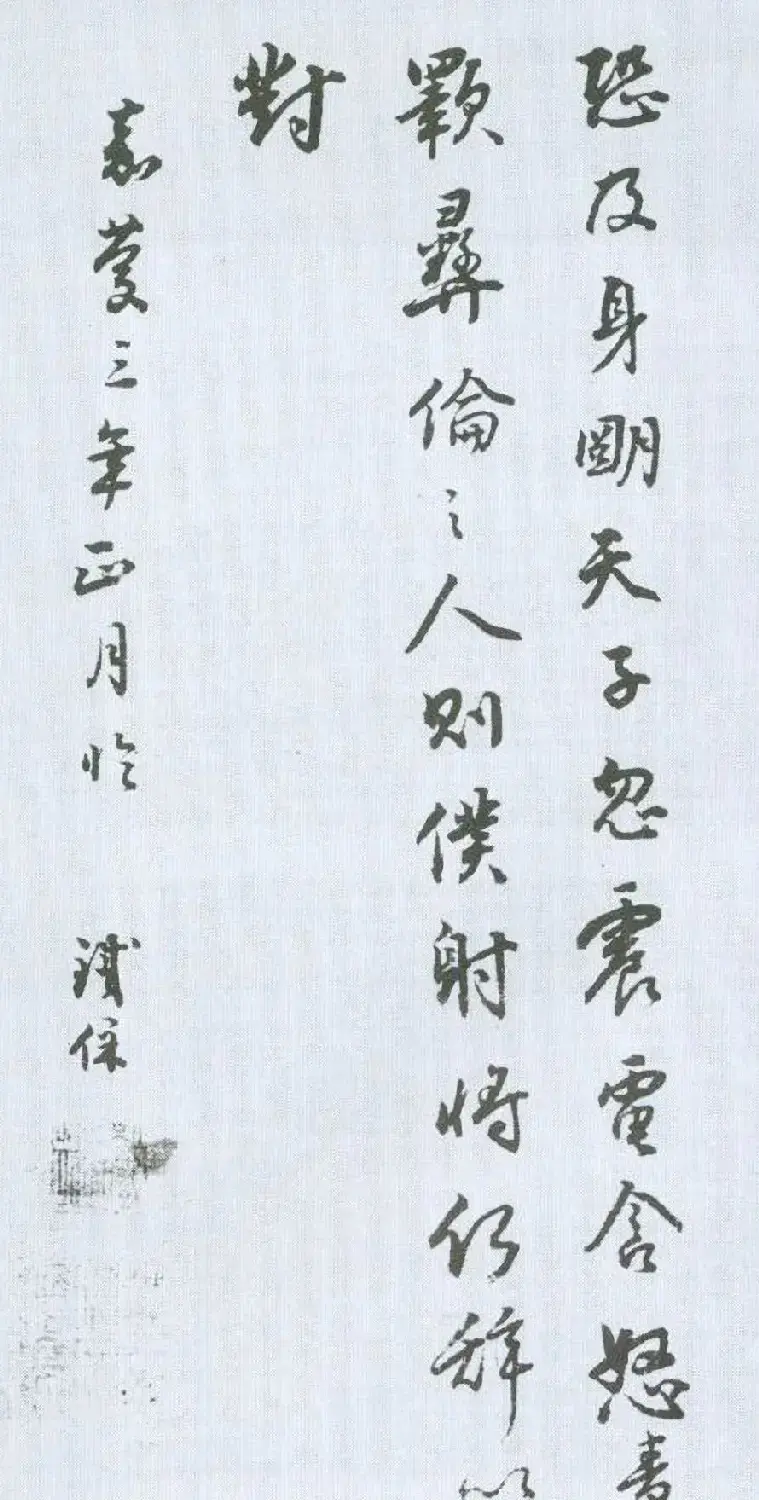 恐及身朙天子忽震電含怒責
斁彝倫之人則僕射將何辭以
對
嘉慶三年正月臨 鐵保